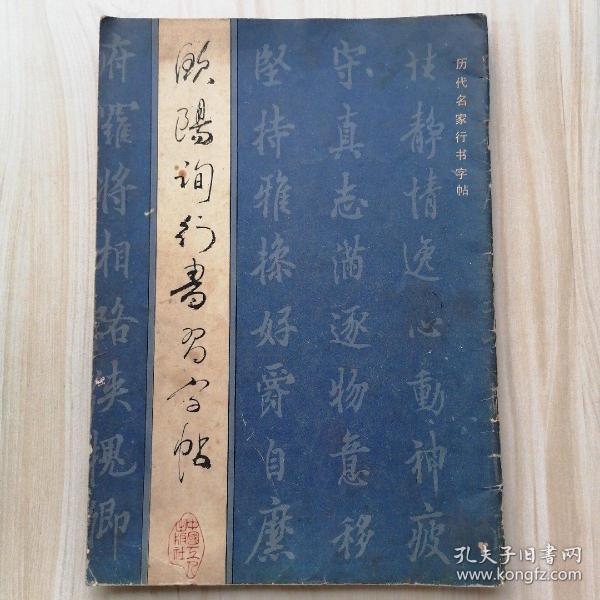 历代名家行书字帖
性静情逸心动神疲
守真志满逐物意移
坚持雅操好爵自縻
欧陽询行書習字帖
府罗将相路侠槐卿
中国书店
出版社
孔夫子旧书网
www.kongfz.com